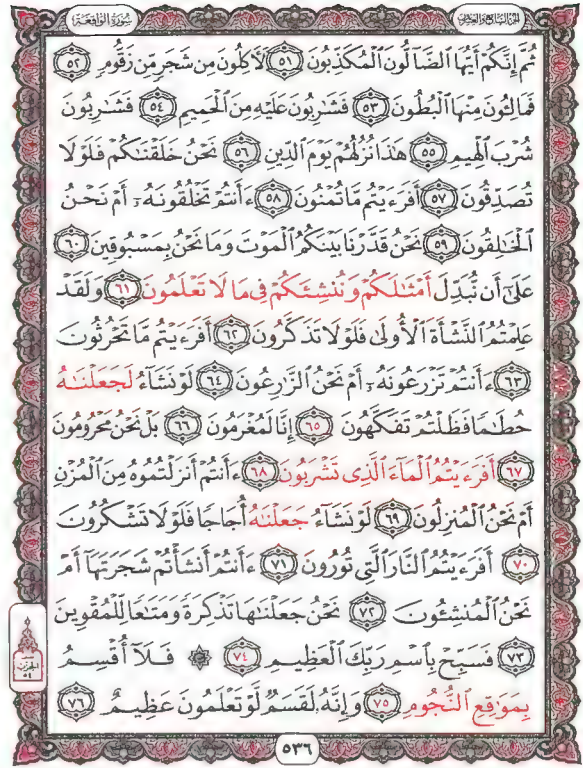 الجزء السابع والعشرون
سُورَةُ الوَاقِعَةِ
ثُمَّ إِنَّكُمْ أَيُّهَا ٱلضَّآلُّونَ ٱلْمُكَذِّبُونَ ٥١ لَأٓكِلُونَ مِن شَجَرٍ مِّن زَقُّومٍ ٥٢
فَمَالِـُٔونَ مِنْهَا ٱلْبُطُونَ ٥٣ فَشَٰرِبُونَ عَلَيْهِ مِنَ ٱلْحَمِيمِ ٥٤ فَشَٰرِبُونَ
شُرْبَ ٱلْهِيمِ ٥٥ هَٰذَا نُزُلُهُمْ يَوْمَ ٱلدِّينِ ٥٦ نَحْنُ خَلَقْنَٰكُمْ فَلَوْلَا
تُصَدِّقُونَ ٥٧ أَفَرَءَيْتُم مَّا تُمْنُونَ ٥٨ ءَأَنتُمْ تَخْلُقُونَهُۥٓ أَمْ نَحْنُ
ٱلْخَٰلِقُونَ ٥٩ نَحْنُ قَدَّرْنَا بَيْنَكُمُ ٱلْمَوْتَ وَمَا نَحْنُ بِمَسْبُوقِينَ ٦٠
عَلَىٰٓ أَن نُّبَدِّلَ أَمْثَٰلَكُمْ وَنُنشِئَكُمْ فِى مَا لَا تَعْلَمُونَ ٦١ وَلَقَدْ
عَلِمْتُمُ ٱلنَّشْأَةَ ٱلْأُولَىٰ فَلَوْلَا تَذَكَّرُونَ ٦٢ أَفَرَءَيْتُم مَّا تَحْرُثُونَ
٦٣ ءَأَنتُمْ تَزْرَعُونَهُۥٓ أَمْ نَحْنُ ٱلزَّٰرِعُونَ ٦٤ لَوْ نَشَآءُ لَجَعَلْنَٰهُ
حُطَٰمًا فَظَلْتُمْ تَفَكَّهُونَ ٦٥ إِنَّا لَمُغْرَمُونَ ٦٦ بَلْ نَحْنُ مَحْرُومُونَ
٦٧ أَفَرَءَيْتُمُ ٱلْمَآءَ ٱلَّذِى تَشْرَبُونَ ٦٨ ءَأَنتُمْ أَنزَلْتُمُوهُ مِنَ ٱلْمُزْنِ
أَمْ نَحْنُ ٱلْمُنزِلُونَ ٦٩ لَوْ نَشَآءُ جَعَلْنَٰهُ أُجَاجًا فَلَوْلَا تَشْكُرُونَ
٧٠ أَفَرَءَيْتُمُ ٱلنَّارَ ٱلَّتِى تُورُونَ ٧١ ءَأَنتُمْ أَنشَأْتُمْ شَجَرَتَهَآ أَمْ
نَحْنُ ٱلْمُنشِـُٔونَ ٧٢ نَحْنُ جَعَلْنَٰهَا تَذْكِرَةً وَمَتَٰعًا لِّلْمُقْوِينَ
٧٣ فَسَبِّحْ بِٱسْمِ رَبِّكَ ٱلْعَظِيمِ ٧٤ ۞ فَلَآ أُقْسِمُ
بِمَوَٰقِعِ ٱلنُّجُومِ ٧٥ وَإِنَّهُۥ لَقَسَمٌ لَّوْ تَعْلَمُونَ عَظِيمٌ ٧٦
الحزب
٥٤
٥٣٦